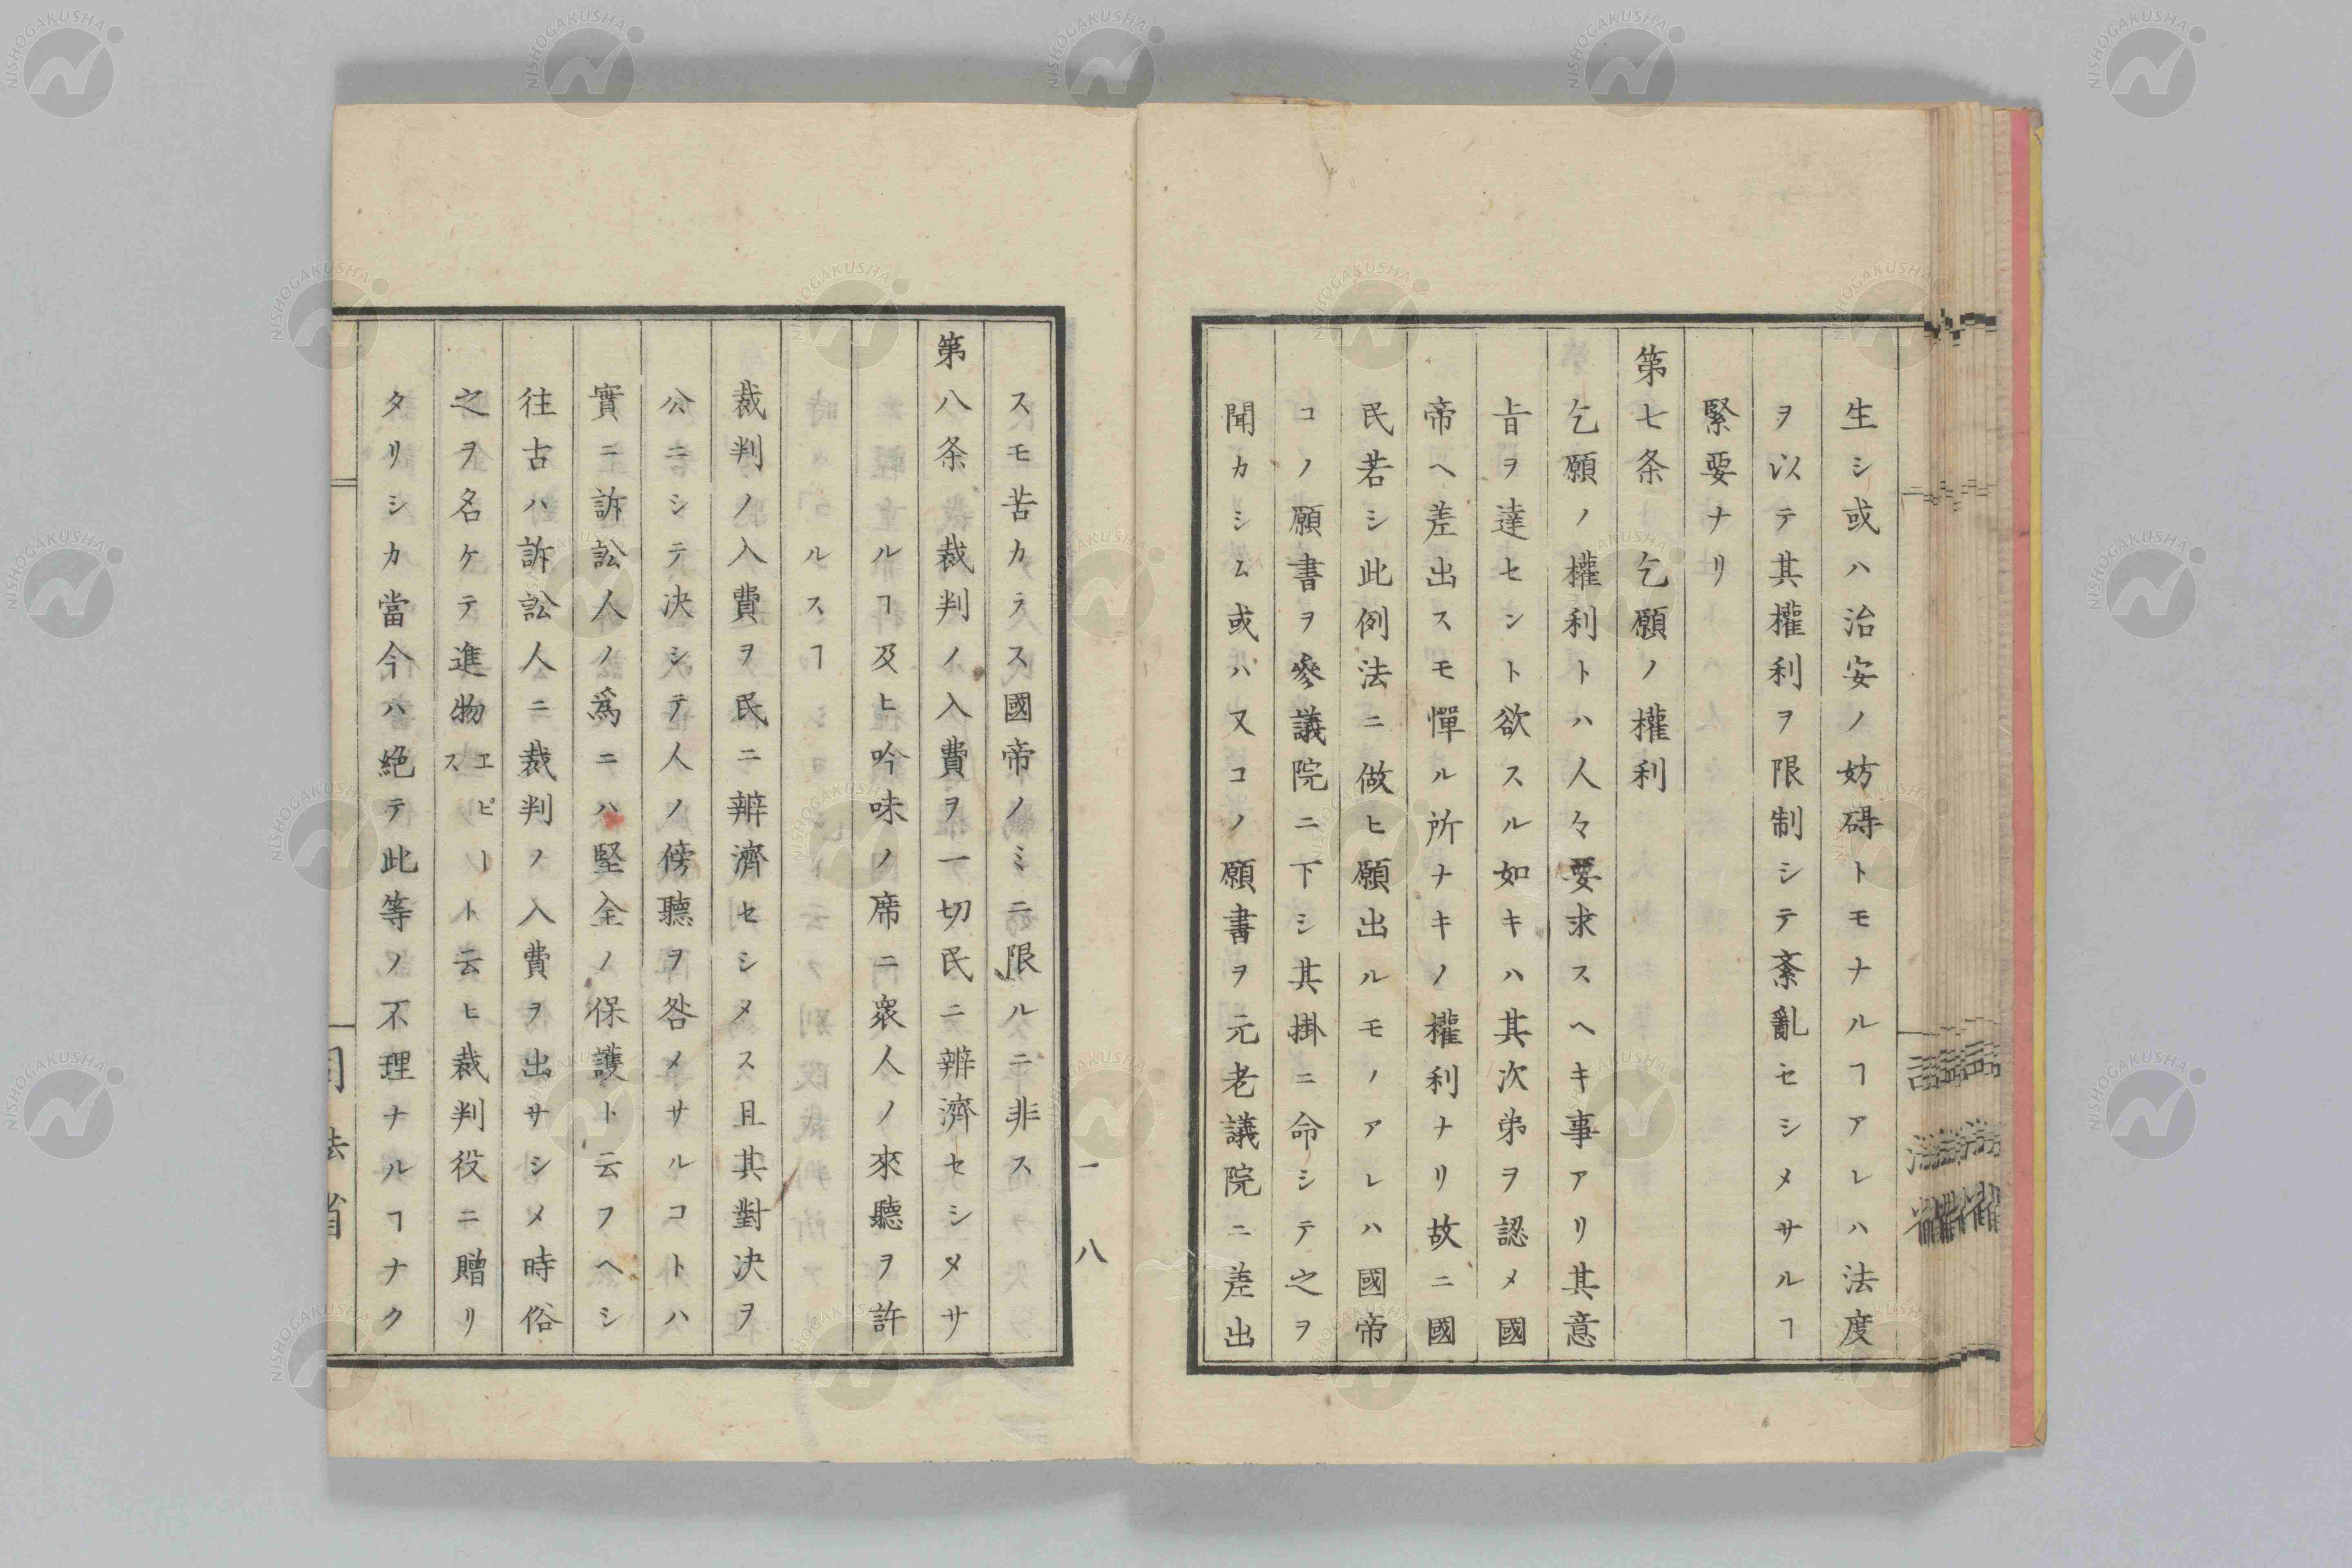 生シ或ハ治安ノ妨碍トモナルヿアレハ法度
ヲ以テ其權利ヲ限制シテ紊亂セシメサルヿ
緊要ナリ
第七条 乞願ノ權利
乞願ノ權利トハ人々要求スヘキ事アリ其意
旨ヲ達セント欲スル如キハ其次弟ヲ認メ國
帝ヘ差出スモ憚ル所ナキノ權利ナリ故ニ國
民若シ此例法ニ倣ヒ願出ルモノアレハ國帝
コノ願書ヲ參議院ニ下シ其掛ニ命シテ之ヲ
聞カシム或ハ又コノ願書ヲ元老議院ニ差出
一八
スモ苦カラス國帝ノミニ限ルニ非ス
第八条 裁判ノ入費ヲ一切民ニ辨濟セシメサ
ルヿ及ヒ吟味ノ席ニ衆人ノ來聽ヲ許
ルスヿ
裁判ノ入費ヲ民ニ辨濟セシメス且其對決ヲ
公ニシテ決シテ人ノ傍聽ヲ咎メサルコトハ
實ニ訴訟人ノ爲ニハ堅全ノ保護ト云フヘシ
往古ハ訴訟人ニ裁判ノ入費ヲ出サシメ時俗
之ヲ名ケテ進物エピースト云ヒ裁判役ニ贈リ
タリシカ當今ハ絶テ此等ノ不理ナルヿナク
司法省
NISHOGAKUSHA